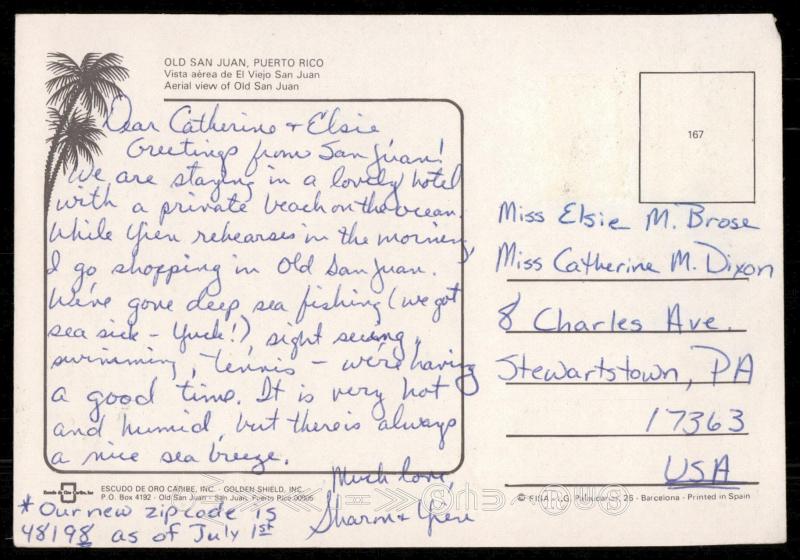 OLD SAN JUAN, PUERTO RICO
Vista aérea de El Viejo San Juan
Aerial view of Old San Juan
Dear Catherine + Elsie
Greetings from San Juan!
We are staying in a lovely hotel
with a private beach on the ocean.
While Yien rehearses in the morning,
I go shopping in Old San Juan.
We've gone deep sea fishing (we got
sea sick - Yuck!) sight seeing,
swimming, tennis - we're having
a good time. It is very hot
and humid, but there is always
a nice sea breeze.
Much love,
Sharon +
*Our new zip code is
48198 as of July 1st
167
Miss Elsie M. Brose
Miss Catherine M. Dixon
8 Charles Ave.
Stewartstown, PA
17363
USA
Escudo de Oro Caribe, Inc
ESCUDO DE ORO CARIBE, INC. - GOLDEN SHIELD, INC.
P.O. Box 4192 - Old San Juan - San Juan, Puerto Rico 00905
© FISA - I.G. Palaudarias, 26 - Barcelona - Printed in Spain